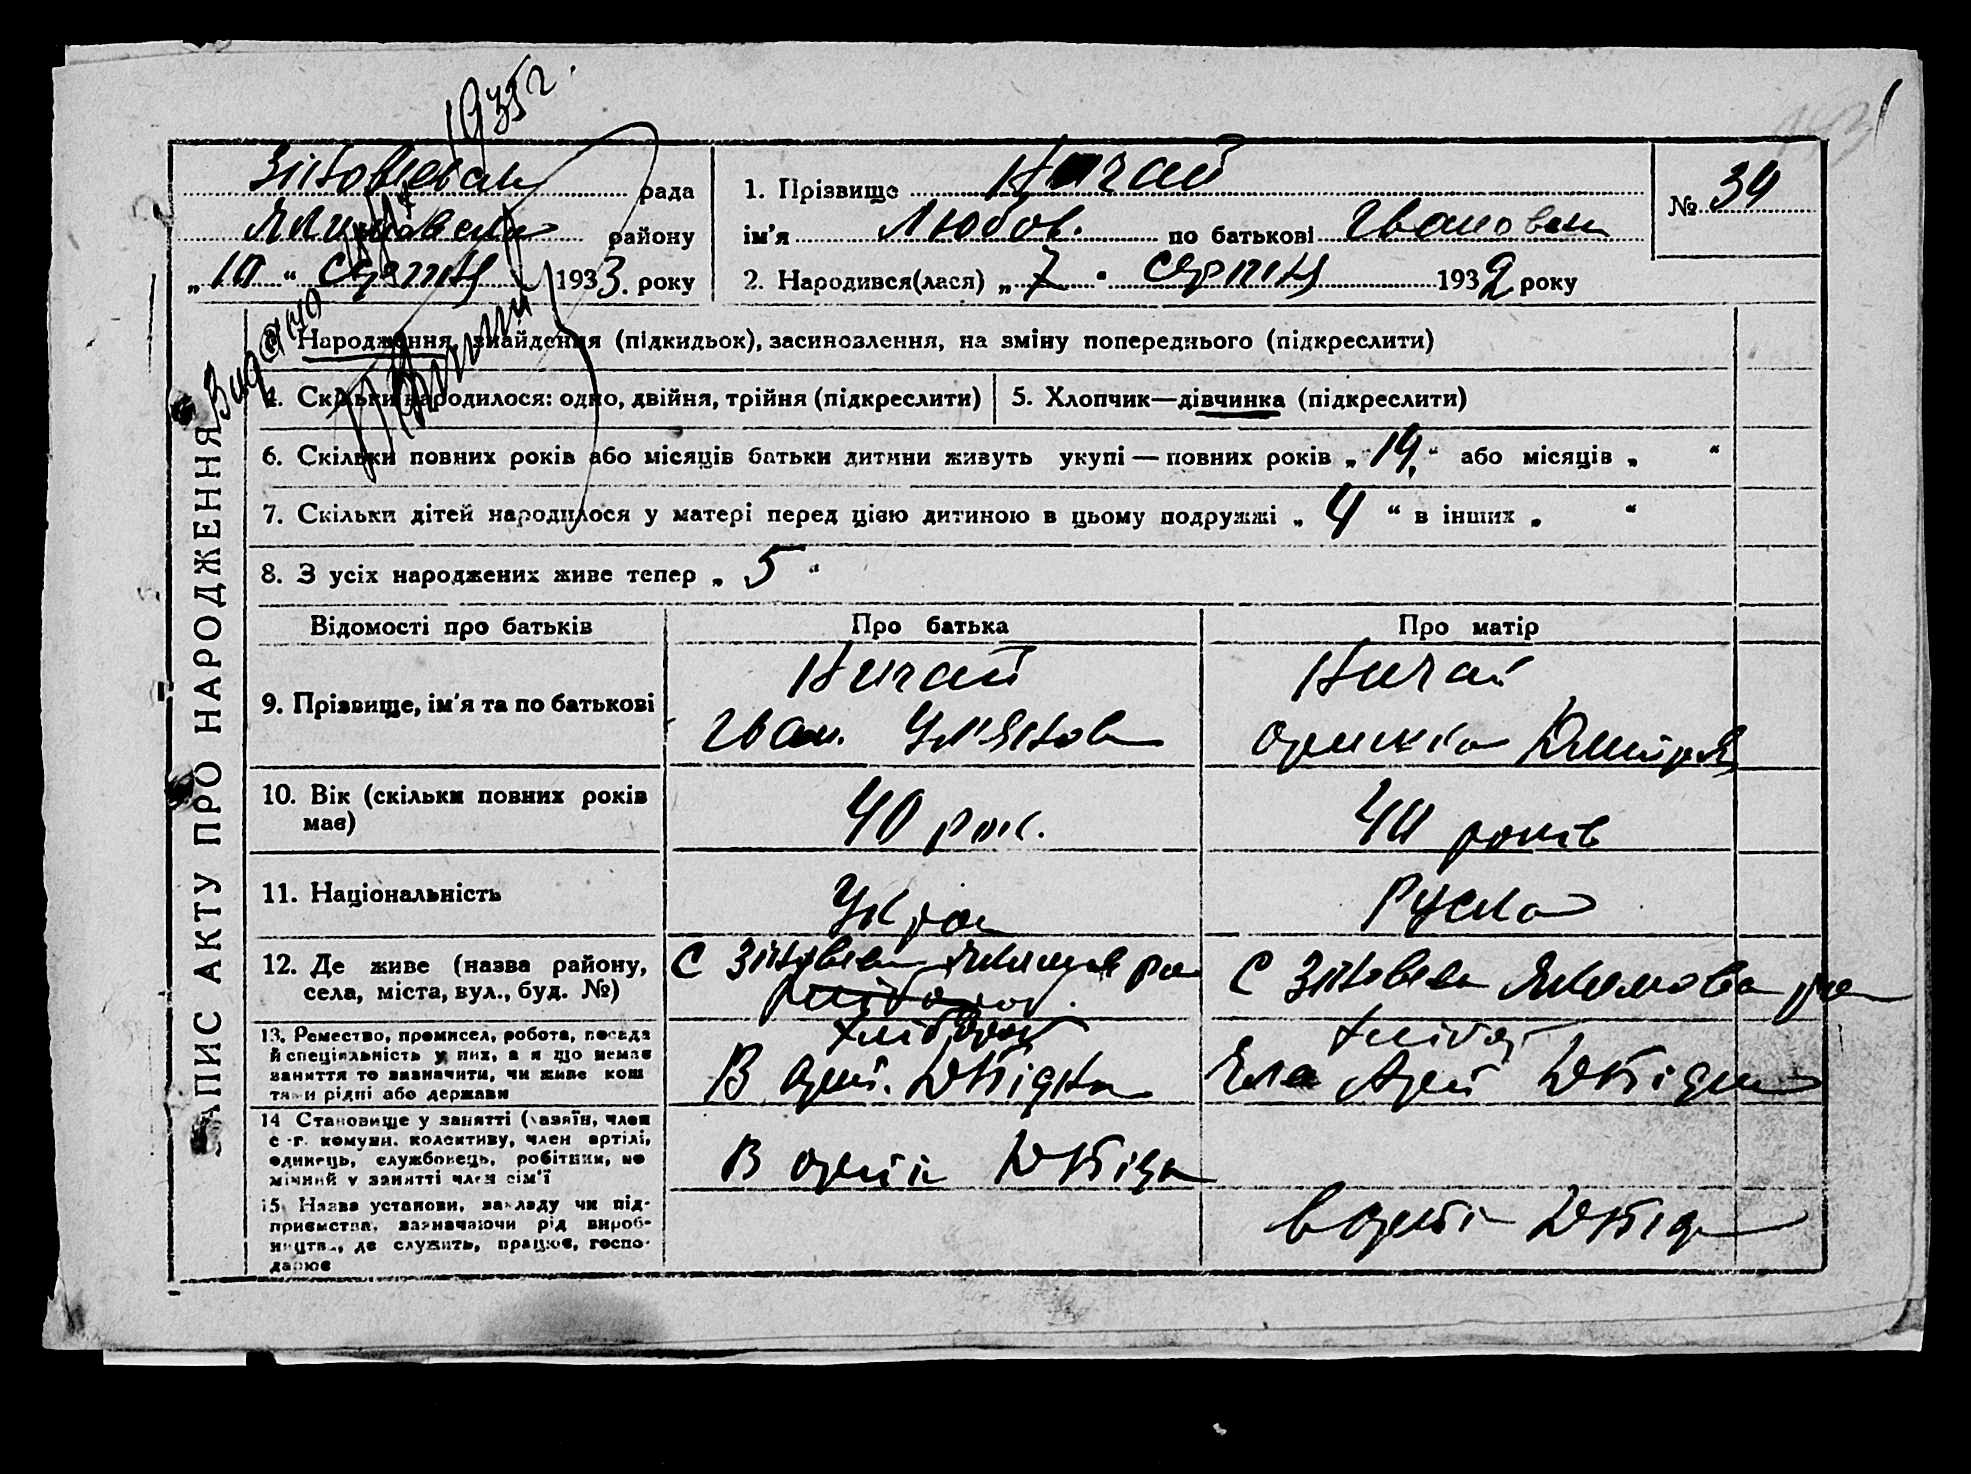 1935 г.
Зіновієвська рада
району
„10“ серпня 1933. року
1. Прізвище Ничай
ім'я Любов. по батькові Івановна
2. Народився(лася) „7“ серпня 1932 року
№ 34
Видано
ЗАПИС АКТУ ПРО НАРОДЖЕННЯ
Народження, знайдення (підкидьок), засиновлення, на зміну попереднього (підкреслити)
4. Скільки народилося: одно, двійня, трійня (підкреслити)
5. Хлопчик—дівчинка (підкреслити)
6. Скільки повних років або місяців батьки дитини живуть укупі — повних років „14.“ або місяців „ “
7. Скільки дітей народилося у матері перед цією дитиною в цьому подружжі „4“ в інших „ “
8. З усіх народжених живе тепер „5“
Відомості про батьків
Про батька
Про матір
9. Прізвище, ім'я та по батькові
Ничай
Іван.
Ничай
10. Вік (скільки повних років
має)
40 рок.
40 років
11. Національність
Укра
Руска
12. Де живе (назва району,
села, міста, вул., буд. №)
С
С
13. Ремество, промисел, робота, посада
й спеціяльність у них, а я що немає
заняття то зазначити, чи живе кош
тами рідні або держави
хлібороб
В
14 Становище у занятті (хазяїн, член
с.-г. комуни, колективу, член артілі,
одинець, службовець, робітник, по
мічний у занятті член сім'ї
В
15. Назва установи, закладу чи під-
приємства, зазначаючи рід вироб-
ництва, де служить, працює, госпо-
дарює
в